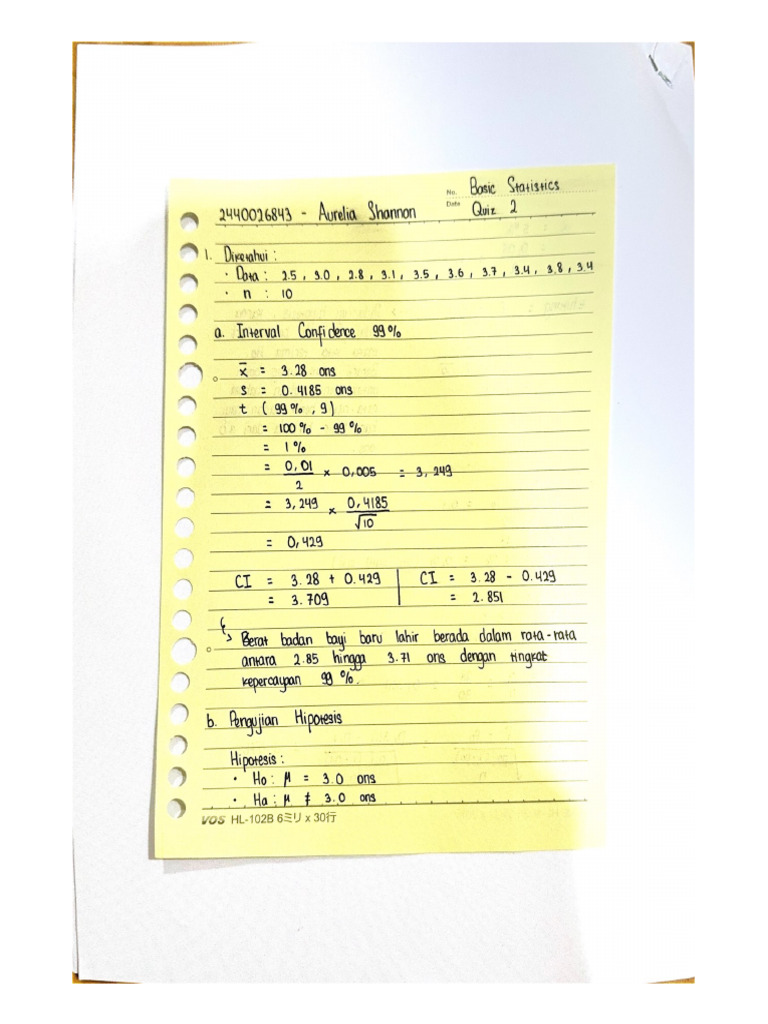 No. Basic Statistics
2440026843 - Aurelia Shannon
Date Quiz 2
1. Diketahui :
• Data : 2.5 , 3.0 , 2.8 , 3.1 , 3.5 , 3.6 , 3.7 , 3.4 , 3.8 , 3.4
• n : 10
a. Interval Confidence 99%
x̄ = 3.28 ons
s = 0.4185 ons
t ( 99% , 9)
= 100% - 99%
= 1%
= 0,01/2 x 0,005 = 3,249
= 3,249 x 0,4185/√10
= 0,429
CI = 3.28 + 0.429 | CI = 3.28 - 0.429
= 3.709 | = 2.851
↳ Berat badan bayi baru lahir berada dalam rata-rata
antara 2.85 hingga 3.71 ons dengan tingkat
kepercayaan 99%.
b. Pengujian Hipotesis
Hipotesis :
• Ho : μ = 3.0 ons
• Ha : μ ≠ 3.0 ons
VOS HL-102B 6ミリ x 30行